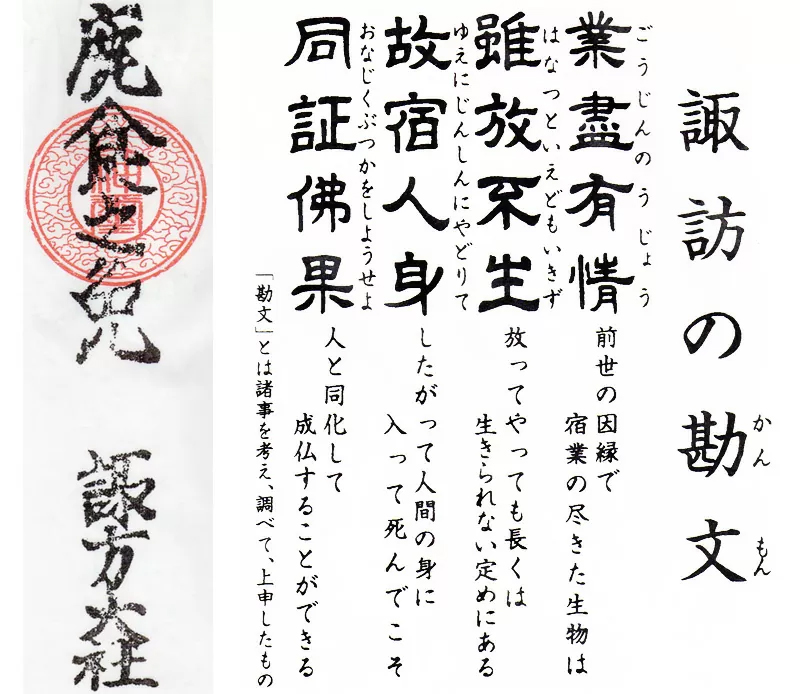 諏訪の勘文
かんもん
業盡有情
ごうじんのうじょう
雖放不生
はなつといえどもいきず
故宿人身
ゆえにじんしんにやどりて
同証佛果
おなじくぶつかをしようせよ
前世の因縁で
宿業の尽きた生物は
放ってやっても長くは
生きられない定めにある
したがって人間の身に
入って死んでこそ
人と同化して
成仏することができる
「勘文」とは諸事を考え、調べて、上申したもの
鹿食之免
諏方大社